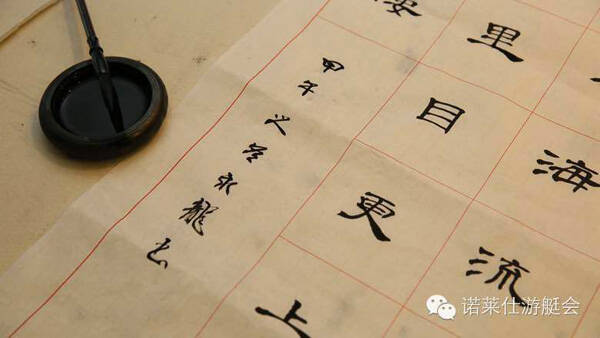 海流
里目更上
甲午之岁永龍书
诺莱仕游艇会